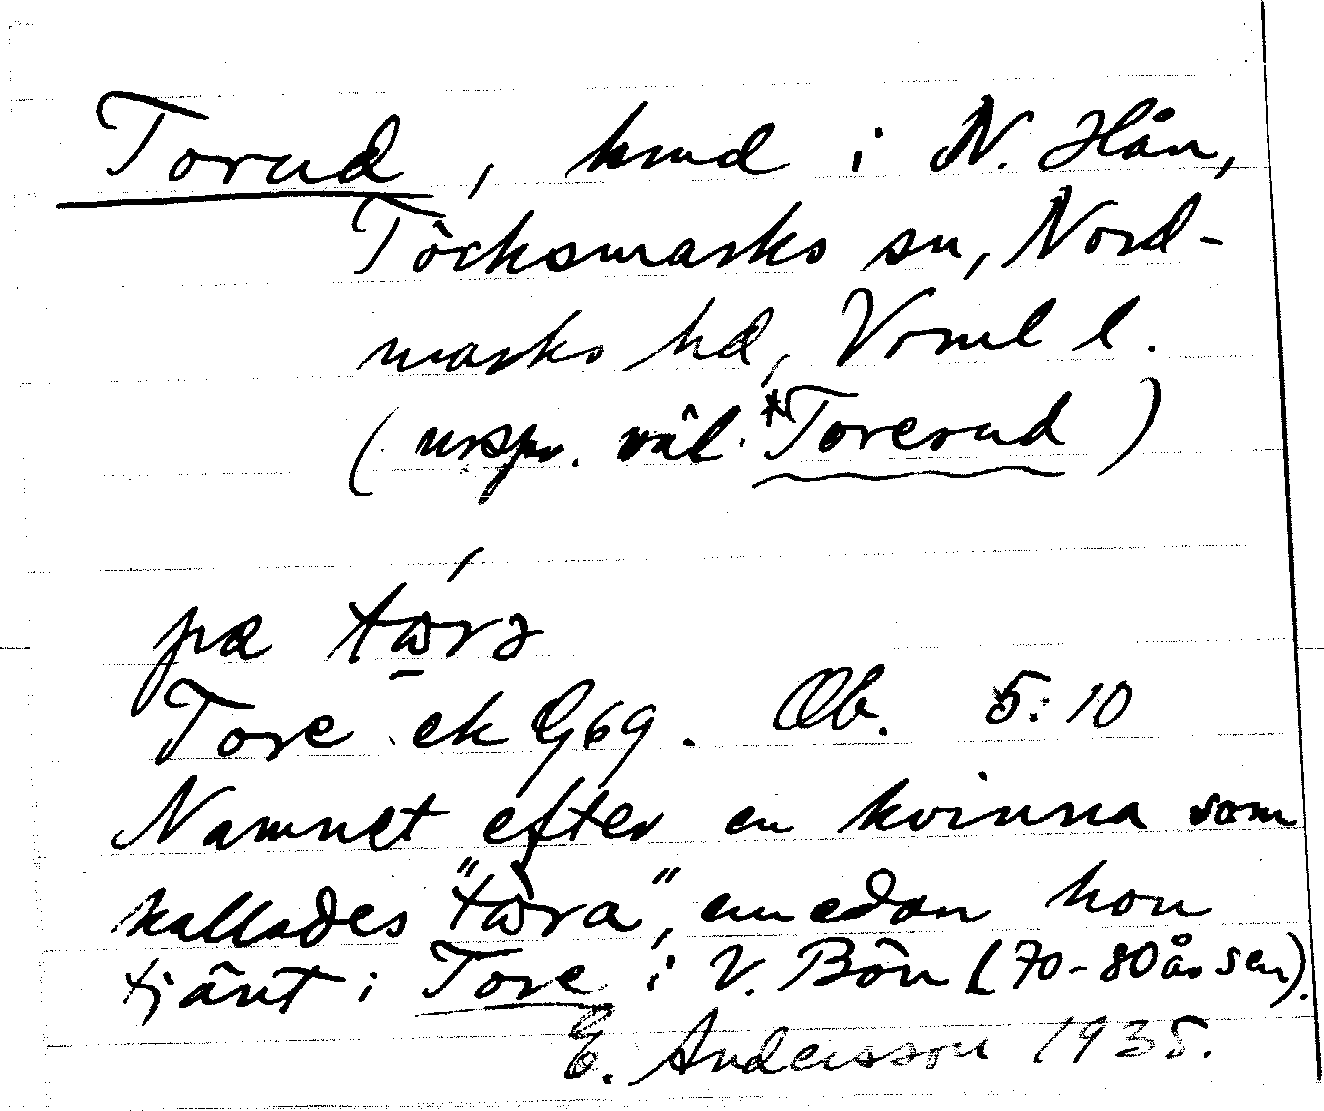 Torud, hmd i N. Hån,
Töcksmarks sn, Nord-
marks hd, Vrml l.
(urspr. väl *Torerud)
pa
Tore ek G69. Ob. 5:10
Namnet efter en kvinna som
kallades "tɷra", emedan hon
tjänt i Tore i V. Bön (70-80 år sen).
E. Andersson 1935.